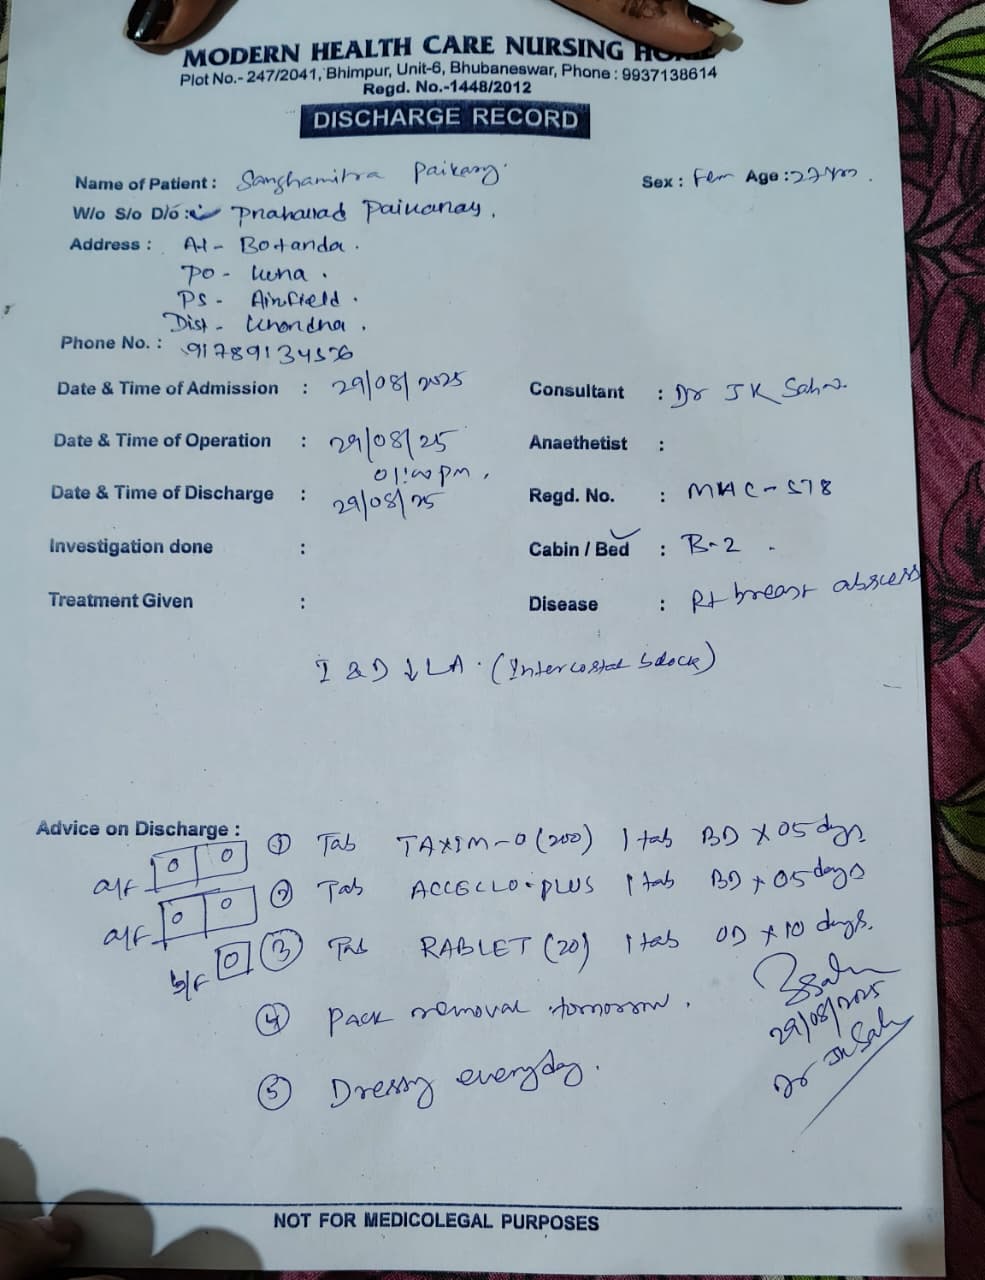 MODERN HEALTH CARE NURSING HOME
Plot No.- 247/2041, Bhimpur, Unit-6, Bhubaneswar, Phone : 9937138614
Regd. No.-1448/2012
DISCHARGE RECORD
Name of Patient : Sanghamitra Paikaray. Sex : Fem Age : 27 yrs.
W/o S/o D/o : Prahanad Paikaray.
Address : At - Botanda.
Po -
PS - Airfield.
Dist -
Phone No. :
Date & Time of Admission : 29/08/2025 Consultant : Dr J K Sahu.
Date & Time of Operation : 29/08/25 Anaethetist :
01:00 pm.
Date & Time of Discharge : 29/08/25 Regd. No. : MHC-578
Investigation done : Cabin / Bed ✓ : B-2.
Treatment Given : Disease : Rt breast abscess
I & D ↓ LA. (Intercostal block)
Advice on Discharge : ① Tab TAXIM-O (200) 1 tab BD x 05 days
a/f 0 0
② Tab ACCECLO-PLUS 1 tab BD x 05 days
a/f 0 0
③ Tab RABLET (20) 1 tab OD x 10 days.
b/f 0
④ Pack removal tomorrow.
29/08/2025
⑤ Dressing everyday.
Dr JK Sahu
NOT FOR MEDICOLEGAL PURPOSES